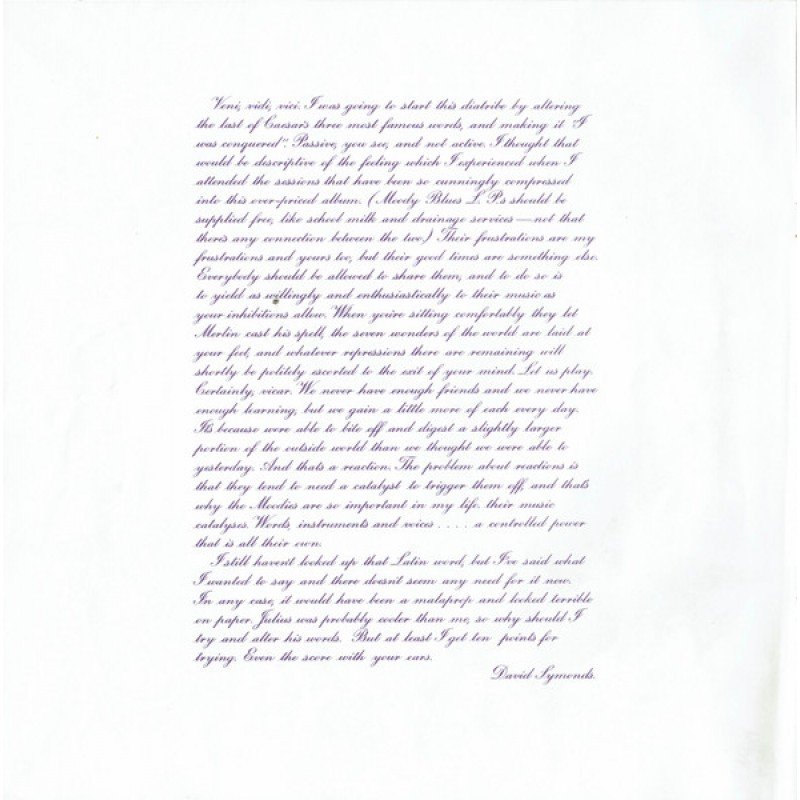 Veni, vidi, vici. I was going to start this diatribe by altering
the last of Caesar's three most famous words, and making it "I
was conquered". Passive, you see, and not active. I thought that
would be descriptive of the feeling which I experienced when I
attended the sessions that have been so cunningly compressed
into this over-priced album. (Moody Blues L. P.s should be
supplied free, like school milk and drainage services — not that
there's any connection between the two.) Their frustrations are my
frustrations and yours too, but their good times are something else.
Everybody should be allowed to share them, and to do so is
to yield as willingly and enthusiastically to their music as
your inhibitions allow. When you're sitting comfortably they let
Merlin cast his spell, the seven wonders of the world are laid at
your feet, and whatever repressions there are remaining will
shortly be politely escorted to the exit of your mind. Let us play.
Certainly, vicar. We never have enough friends and we never have
enough learning, but we gain a little more of each every day.
It's because we're able to bite off and digest a slightly larger
portion of the outside world than we thought we were able to
yesterday. And that's a reaction. The problem about reactions is
that they tend to need a catalyst to trigger them off, and that's
why the Moodies are so important in my life. their music
catalyses. Words, instruments and voices . . . . a controlled power
that is all their own.
I still haven't looked up that Latin word, but I've said what
I wanted to say and there doesn't seem any need for it now.
In any case, it would have been a malaprop and looked terrible
on paper. Julius was probably cooler than me, so why should I
try and alter his words. But at least I get ten points for
trying. Even the score with your ears.
David Symonds.